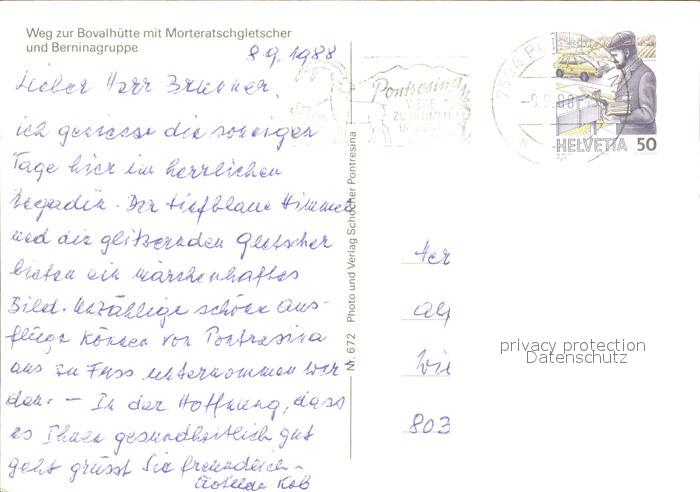 Weg zur Bovalhütte mit Morteratschgletscher
und Berninagruppe
8.9.1988
Lieber Herr Brunner,
ich geniesse die sonnigen
Tage hier im herrlichen
Engadin. Der tiefblaue Himmel
und die glitzernden Gletscher
bieten ein märchenhaftes
Bild. Unzählige schöne Aus-
flüge können von Pontresina
aus zu Fuss unternommen wer-
den. – In der Hoffnung, dass
es Ihnen gesundheitlich gut
geht grüsst Sie freundlich –
Nr. 672 Photo und Verlag Schocher Pontresina
Pontresina
HELVETIA 50
Her
alf
Wie
803
privacy protection
Datenschutz